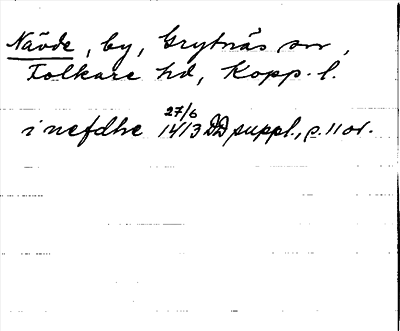 Nävde, by, Grytnäs sn,
Folkare hd, Kopp. l.
i nefdhe 27/6 1413 DD suppl., p. 11 or.